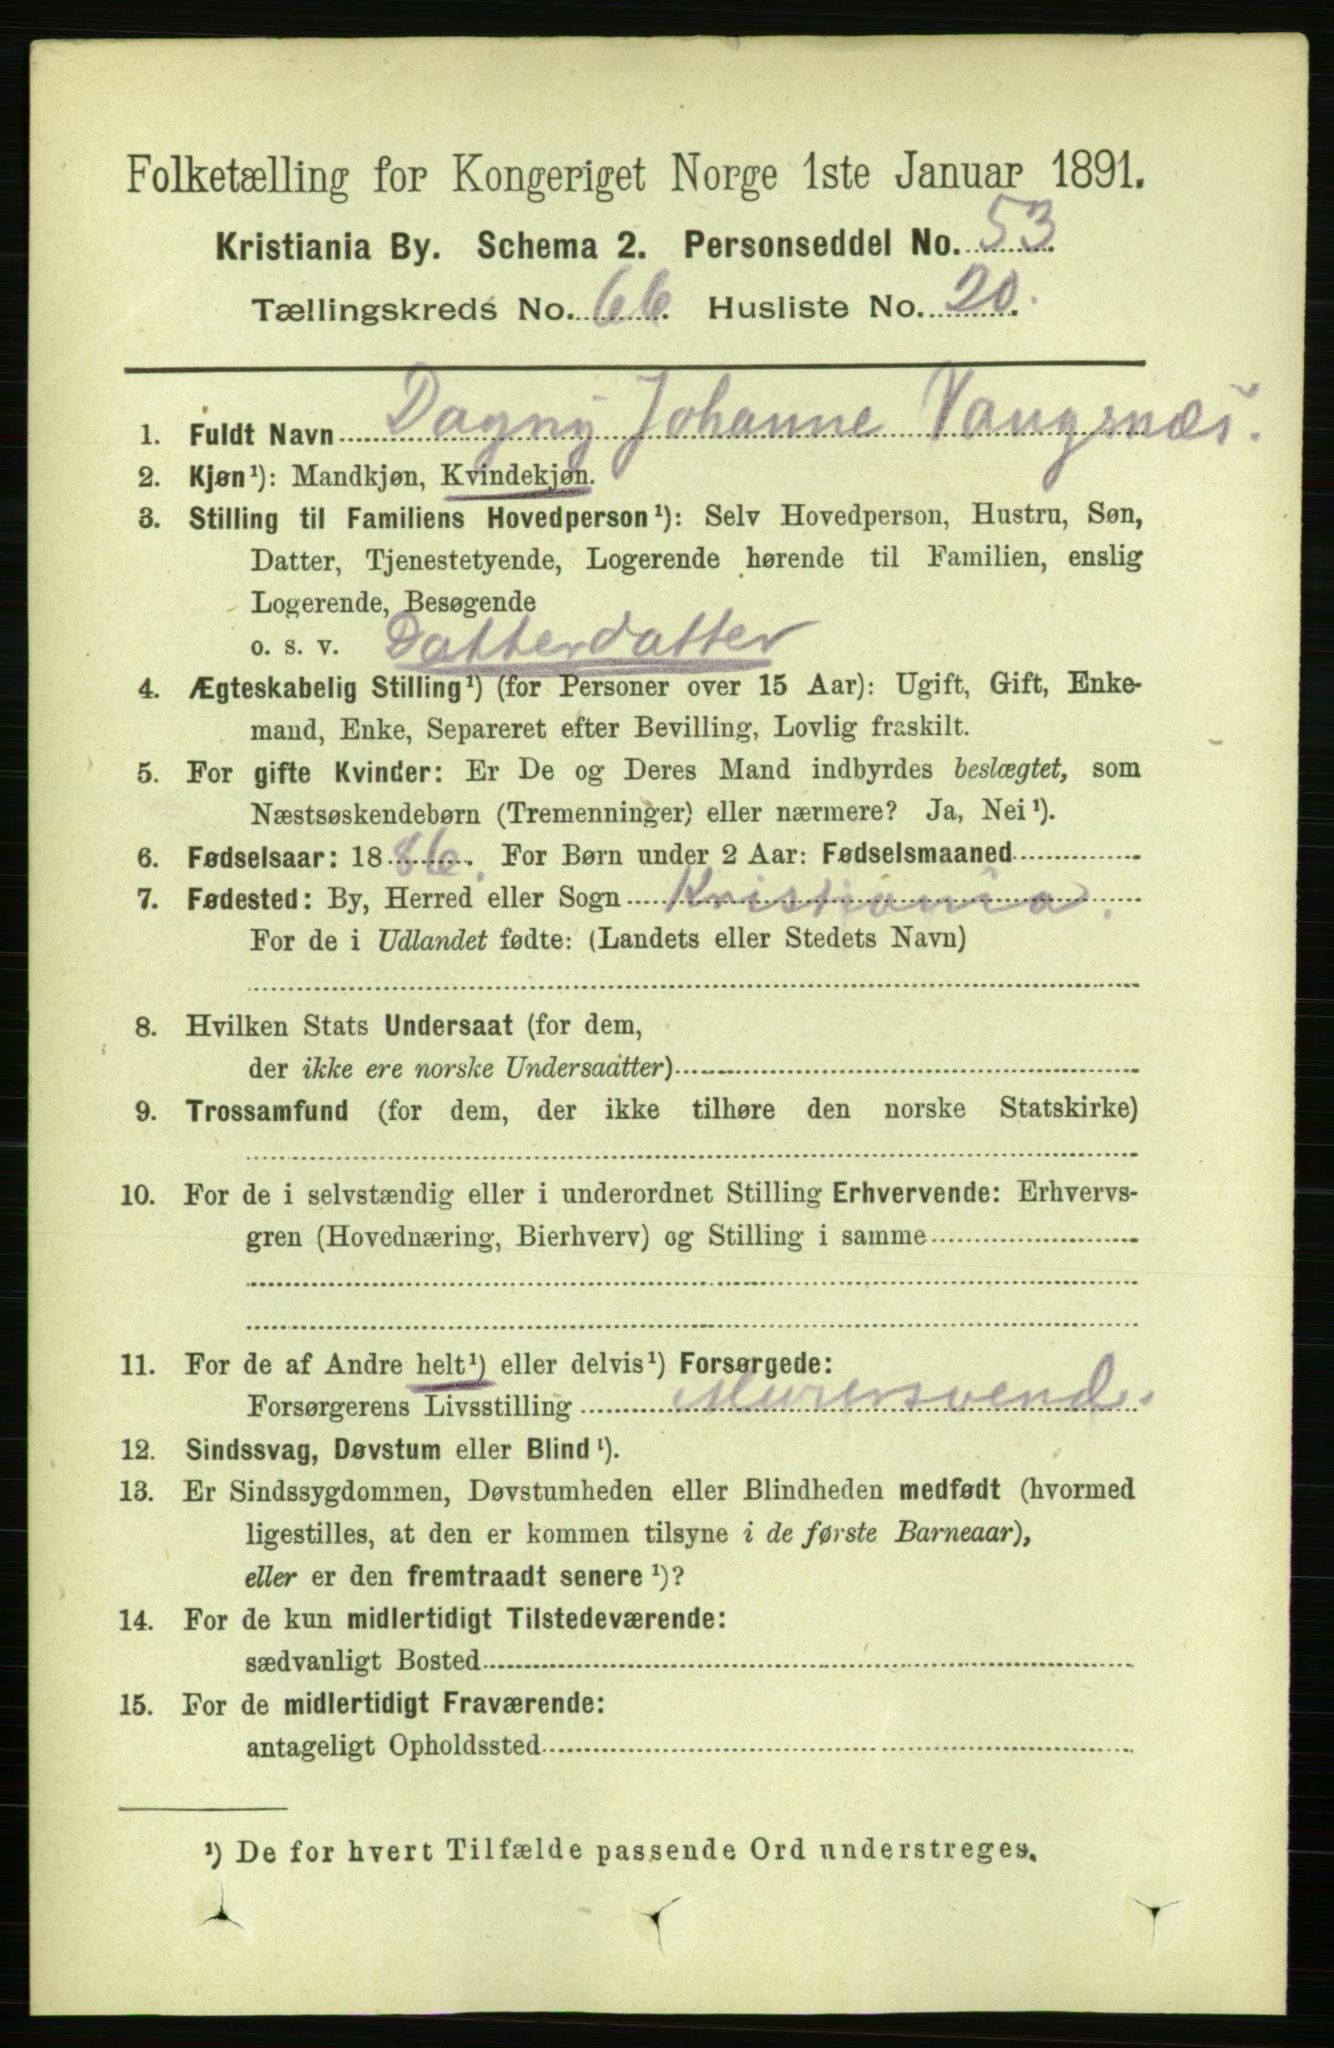 Folketælling for Kongeriget Norge 1ste Januar 1891.
Kristiania By. Schema 2. Personseddel No. 53.
Tællingskreds No. 66. Husliste No. 20.
1. Fuldt Navn Dagny Johanne Vangsnæs.
2. Kjøn¹): Mandkjøn, Kvindekjøn.
3. Stilling til Familiens Hovedperson¹): Selv Hovedperson, Hustru, Søn,
Datter, Tjenestetyende, Logerende hørende til Familien, enslig
Logerende, Besøgende
o. s. v. Datterdatter
4. Ægteskabelig Stilling¹) (for Personer over 15 Aar): Ugift, Gift, Enke-
mand, Enke, Separeret efter Bevilling, Lovlig fraskilt.
5. For gifte Kvinder: Er De og Deres Mand indbyrdes beslægtet, som
Næstsøskendebørn (Tremenninger) eller nærmere? Ja, Nei¹).
6. Fødselsaar: 1886. For Børn under 2 Aar: Fødselsmaaned
7. Fødested: By, Herred eller Sogn Kristiania.
For de i Udlandet fødte: (Landets eller Stedets Navn)
8. Hvilken Stats Undersaat (for dem,
der ikke ere norske Undersaatter)
9. Trossamfund (for dem, der ikke tilhøre den norske Statskirke)
10. For de i selvstændig eller i underordnet Stilling Erhvervende: Erhvervs-
gren (Hovednæring, Bierhverv) og Stilling i samme
11. For de af Andre helt¹) eller delvis¹) Forsørgede:
Forsørgerens Livsstilling Murersvend.
12. Sindssvag, Døvstum eller Blind¹).
13. Er Sindssygdommen, Døvstumheden eller Blindheden medfødt (hvormed
ligestilles, at den er kommen tilsyne i de første Barneaar),
eller er den fremtraadt senere¹)?
14. For de kun midlertidigt Tilstedeværende:
sædvanligt Bosted
15. For de midlertidigt Fraværende:
antageligt Opholdssted
¹) De for hvert Tilfælde passende Ord understreges.